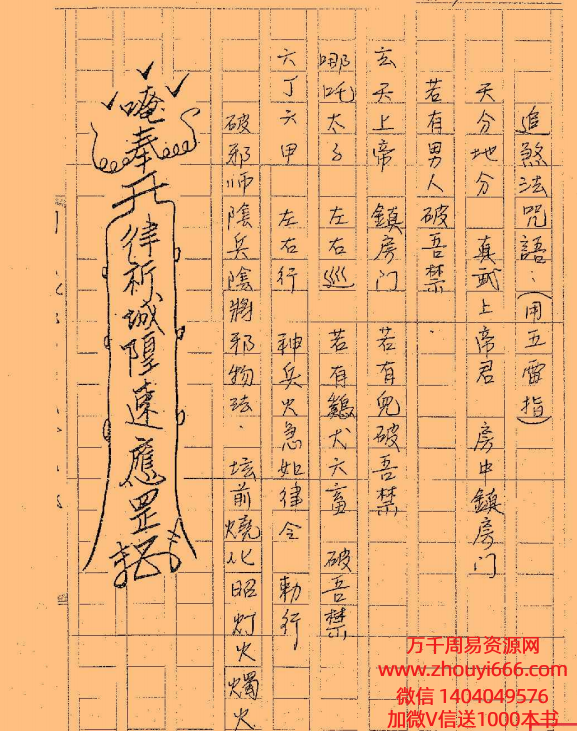 追煞法咒語：(用五雷指)
天分地分 真武上帝君 房中鎮房门
若有男人破吾禁.
玄天上帝 鎮房门 若有鬼破吾禁
哪吒太子 左右巡 若有鷄犬六畜 破吾禁
六丁六甲 左右行 神兵火急如律令 勅行
破邪师陰兵陰將邪物法. 坛前燒化 昭灯火燭火
唵奉
律祈城隍速應罡
万千周易资源网
www.zhouyi666.com
微信 1404049576
加微V信送1000本书